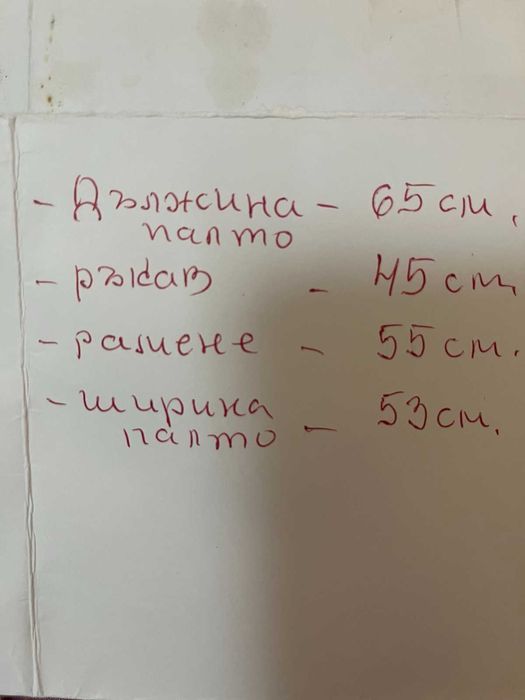 - Дължина - 65 см.
палто
- ръкав - 45 см
- рамене - 55 см.
- ширина - 53 см.
палто